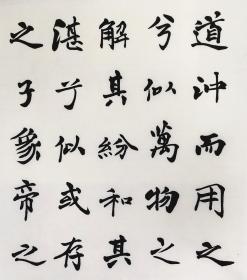 道沖而用之
兮似萬物之
解其紛和其
湛兮似或存
之子象帝之